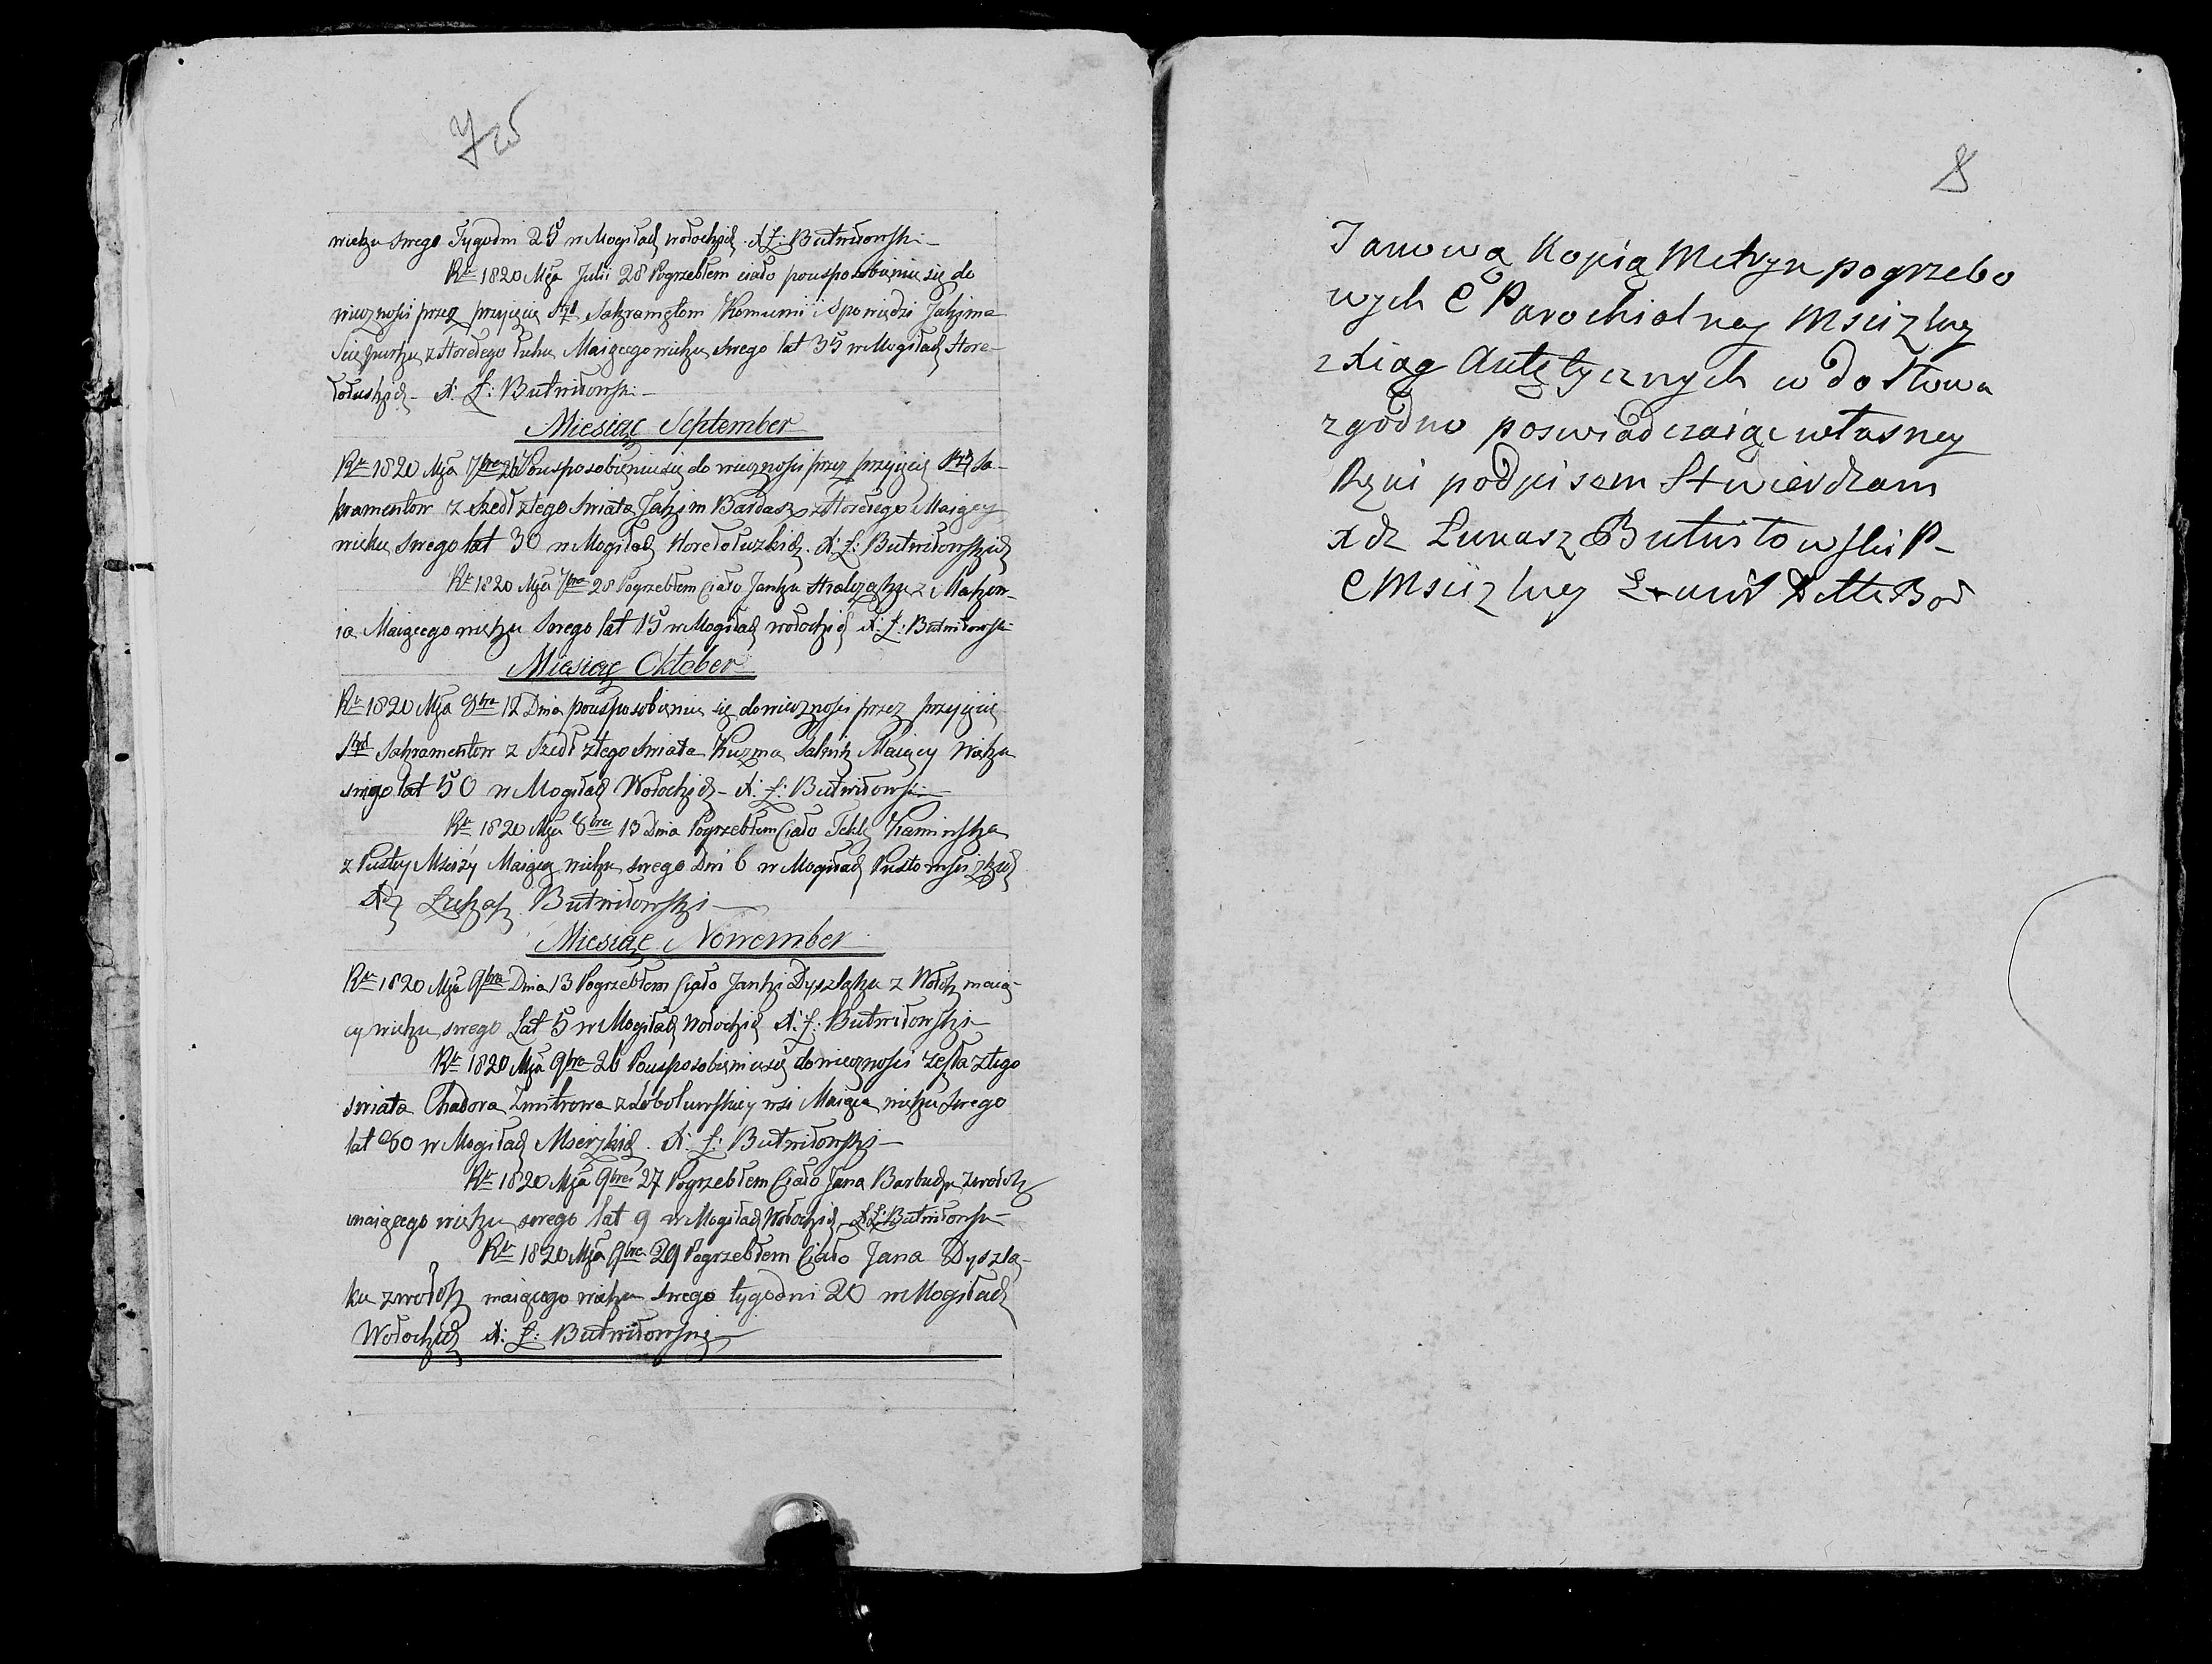 7 25
wieku swego Tygodni 25 w Mogiłach wołockich X: Ł: Butwiłowski
Rku 1820 Mca Julii 28 Pogrzebłem ciało pousposobieniu się do
wieczności przez przyięcie Stch Sakramętom Komunii i Spowiedzi Jakima
z Horodłego Maiącego wieku swego lat 35 w Mogiłach Hore-
X: Ł: Butwiłowski
Miesiąc September
Rku 1820 Mca 7bra 26 Pousposobieniu się do wieczności przez przyięcie Stch Sa-
kramentow z szedł ztego świata Jakim Bardasz Maiący
wieku swego lat 30 w Mogiłach X: Ł: Butwiłowskich
Rku 1820 Mca 7bra 28 Pogrzebłem Ciało Janka z Makow-
ia Maiącego wieku swego lat 15 w Mogiłach wołockich X: Ł: Butwiłowski
Miesiąc Oktober
Rku 1820 Mca 8bra 12 Dnia pousposobieniu się do wieczności przez przyięcie
Stch Sakramentow z szedł ztego świata Kuzma Maiący wieku
swego lat 50 w Mogiłach Wołockich X: Ł: Butwiłowski
Rku 1820 Mca 8bra 13 Dnia Pogrzebłem Ciało Tekli Kaminska
z Pustey Msciży Maiącey wieku swego Dni 6 w Mogiłach
Xdz Łukasz Butwiłowski
Miesiąc Nowember
Rku 1820 Mca 9bra Dnia 13 Pogrzebłem Ciało Janki Dyszlaka z Wołok maią-
cy wieku swego Lat 5 w Mogiłach wołockich X: Ł: Butwiłowski
Rku 1820 Mca 9bra 26 Pousposobieniu się do wieczności zeszła ztego
świata Chadora Zmitrowa wsi Maiąca wieku swego
lat 80 w Mogiłach Mscizkich X: Ł: Butwiłowski
Rku 1820 Mca 9bra 27 Pogrzebłem Ciało Jana zwołok
maiącego wieku swego lat 9 w Mogiłach Wołockich X: Ł: Butwiłowski
Rku 1820 Mca 9bra 29 Pogrzebłem Ciało Jana Dyszla-
ka zwołok maiącego wieku swego tygodni 20 w Mogiłach
Wołockich X: Ł: Butwiłowski
8
Takową Kopią Metryk pogrzebo
wych C Parochialney Mscizkiey
z Xiąg Autętycznych w do słowa
zgodno poswiadczaiąc własney
Ręki podpisem Stwierdzam
Xdz Łukasz Butwiłowski P
C Mscizkiey